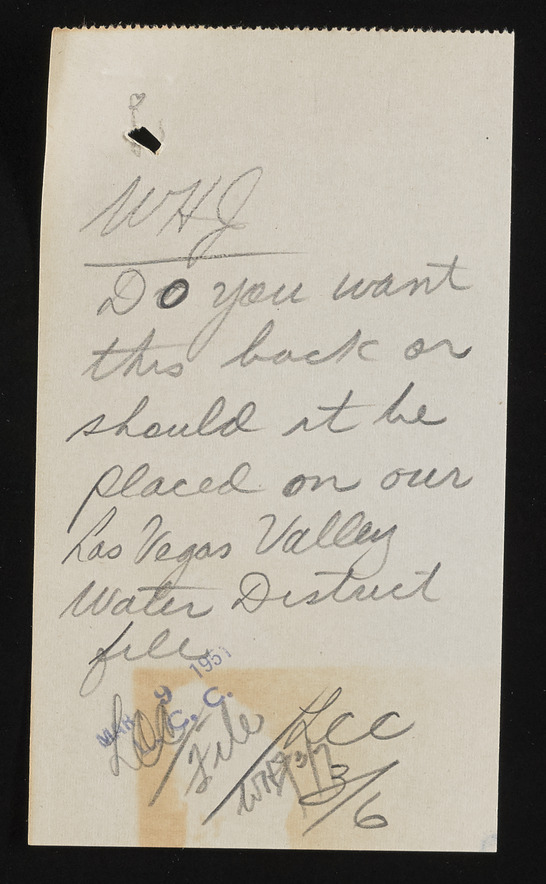 WHJ
Do you want
this back or
should it be
placed on our
Las Vegas Valley
Water District
file
MAR 9 1951
L. C. C.
LCC
File
WHJ 3/7
LCC
3/6